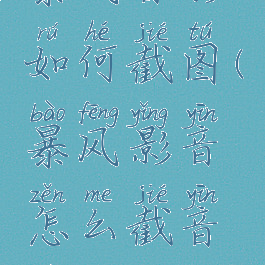 rú hé jié tú
如何截图(
bào fēng yǐng yīn
暴风影音
zěn me jié yīn
怎么截音